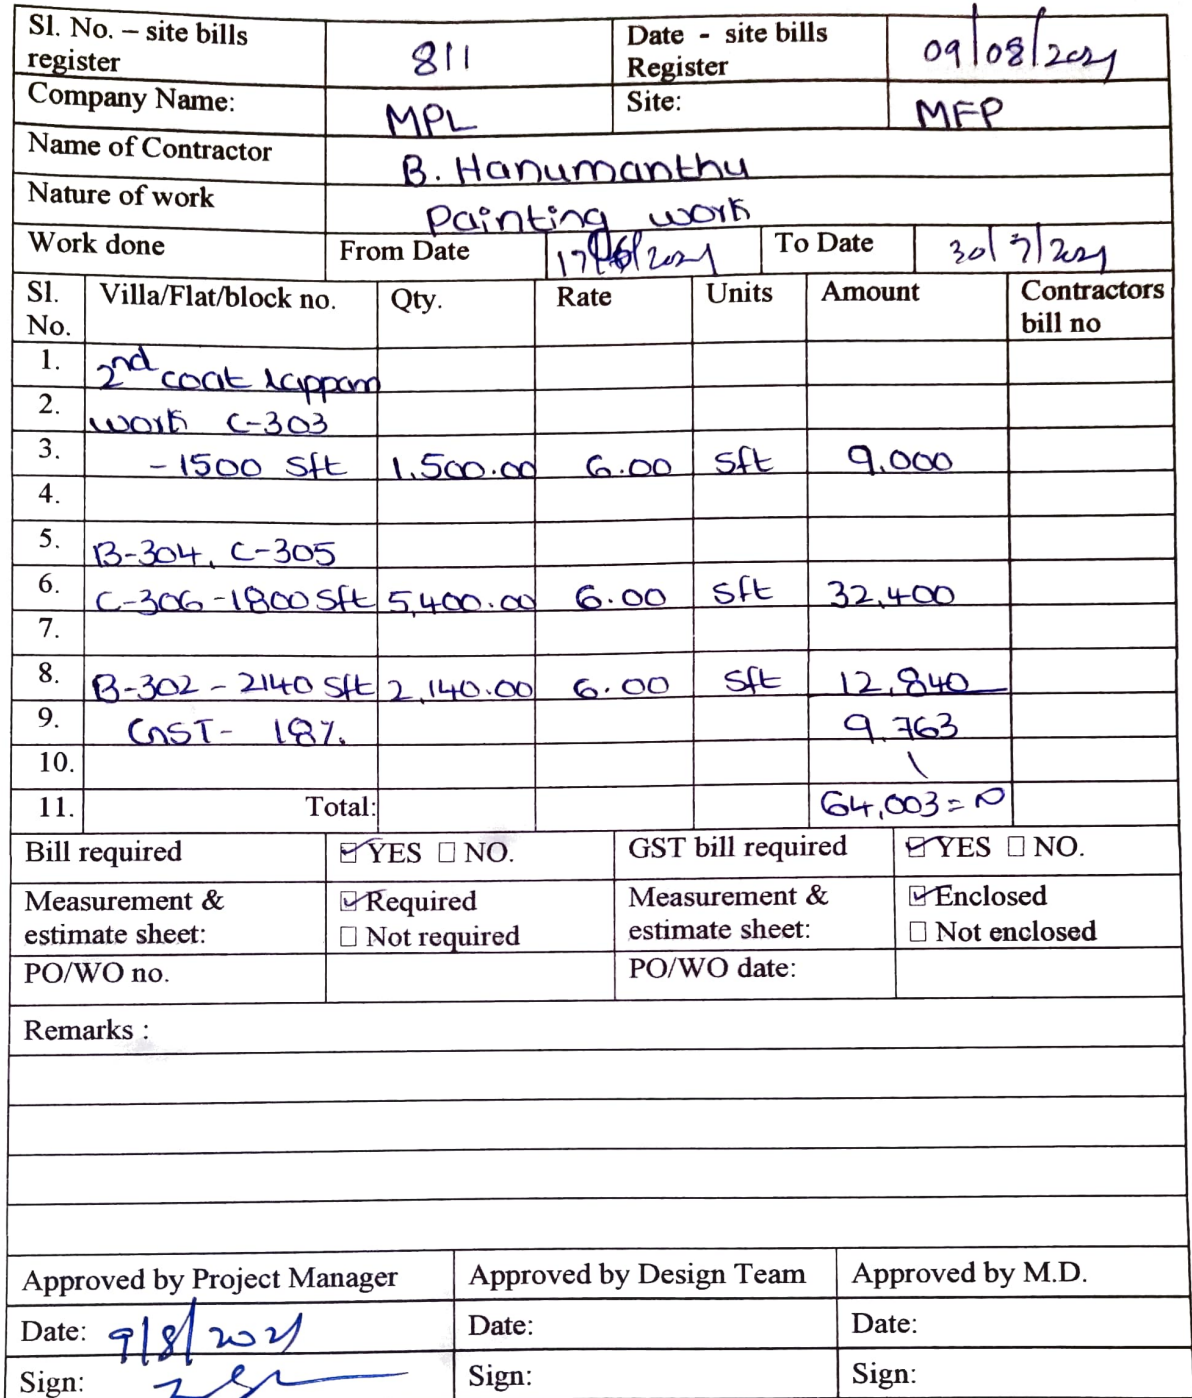 Sl. No. – site bills register 811 Date - site bills Register 09/08/2021
Company Name: MPL Site: MFP
Name of Contractor B. Hanumanthu
Nature of work Painting work
Work done From Date 17/6/2021 To Date 30/7/2021
Sl. No. Villa/Flat/block no. Qty. Rate Units Amount Contractors bill no
1. 2nd coat lappam
2. work C-303
3. - 1500 Sft 1,500.00 6.00 Sft 9,000
4.
5. B-304, C-305
6. C-306 - 1800 Sft 5,400.00 6.00 Sft 32,400
7.
8. B-302 - 2140 Sft 2,140.00 6.00 Sft 12,840
9. GST - 18% 9,763
10.
11. Total: 64,003 =
Bill required ☑ YES ☐ NO. GST bill required ☑ YES ☐ NO.
Measurement & estimate sheet: ☑ Required ☐ Not required Measurement & estimate sheet: ☑ Enclosed ☐ Not enclosed
PO/WO no. PO/WO date:
Remarks :
Approved by Project Manager Approved by Design Team Approved by M.D.
Date: 9/8/2021 Date: Date:
Sign: Sign: Sign: